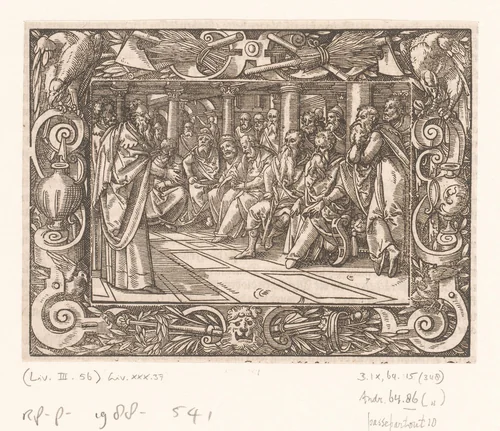 (Liv. III. 56) Liv. XXX. 37
B. IX, 64. 15 (348)
Andr. 64.86 (11)
RP-P- 1988- 541
passepartout 10